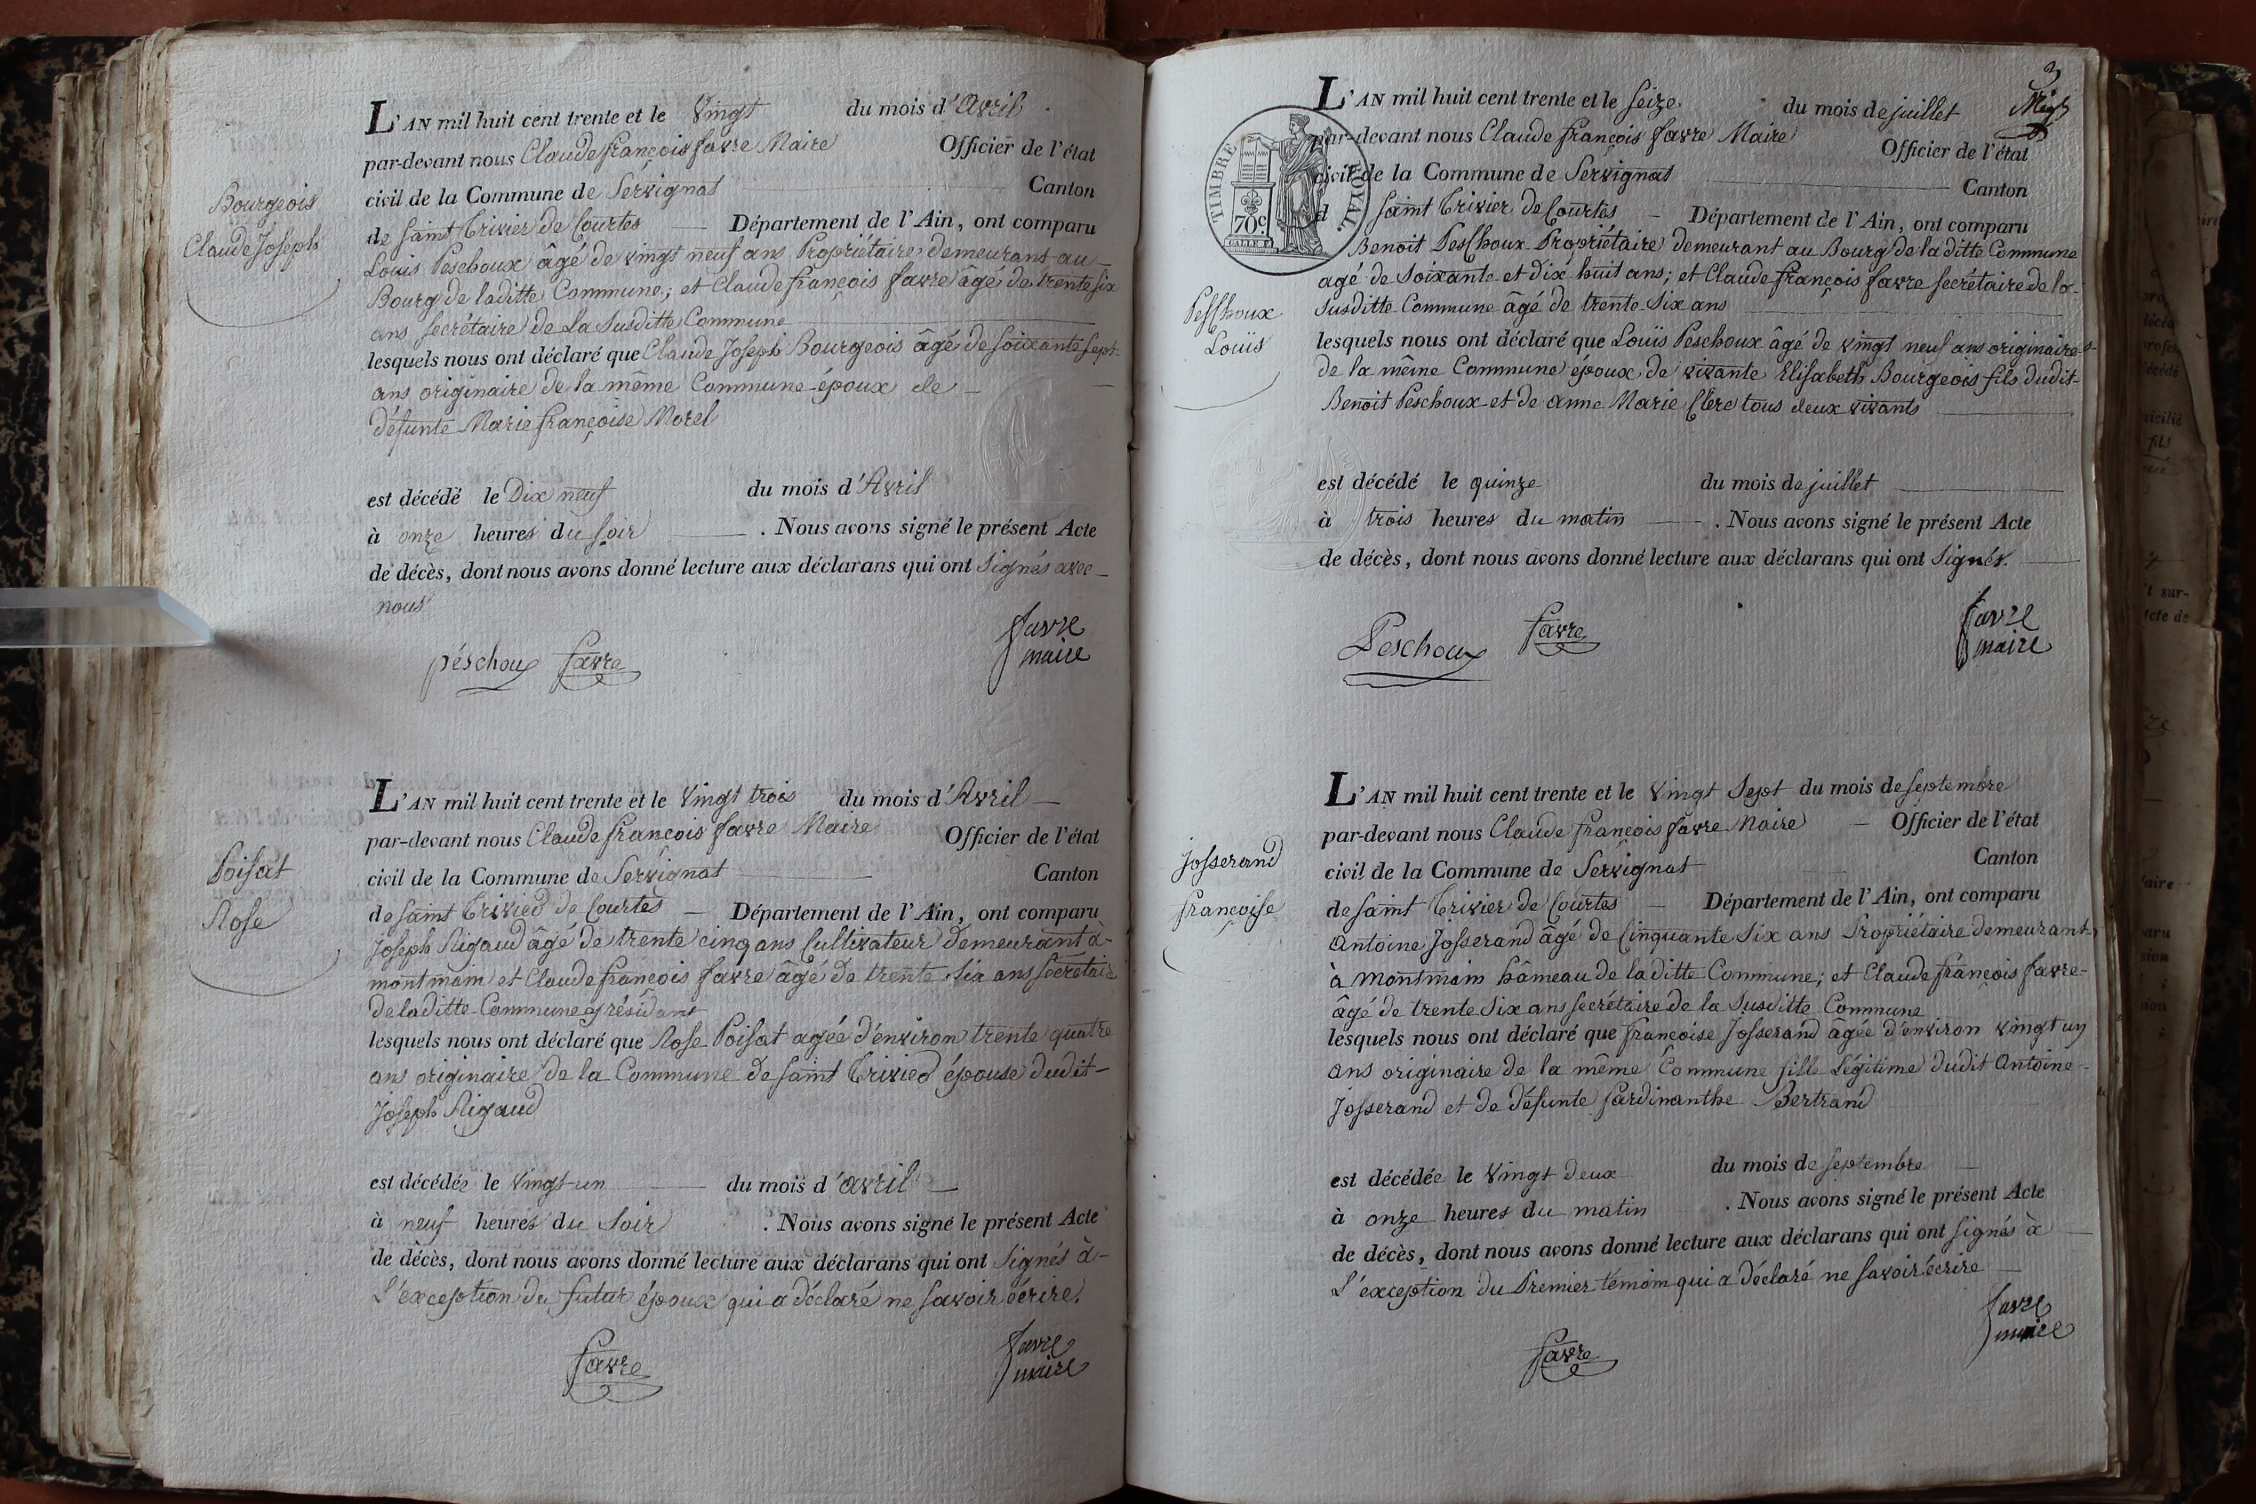 Bourgeois
Claude Joseph
L'AN mil huit cent trente et le Vingt du mois d'Avril
par-devant nous Claude françois favre Maire Officier de l'état
civil de la Commune de Servignat Canton
de Saint Trivier de Courtes Département de l'Ain, ont comparu
Louis Peschoux âgé de vingt neuf ans Propriétaire demeurant au
Bourg de laditte Commune; et Claude françois favre âgé de trente six
ans secrétaire de La susditte Commune
lesquels nous ont déclaré que Claude Joseph Bourgeois âgé de soixante sept
ans originaire de la même Commune époux de
défunte Marie françoise Morel
est décédé le Dix neuf du mois d'Avril
à onze heures du soir . Nous avons signé le présent Acte
de décès, dont nous avons donné lecture aux déclarans qui ont signés avec
nous
péschoux favre favre
maire
Poisat
Rose
L'AN mil huit cent trente et le Vingt trois du mois d'Avril
par-devant nous Claude françois favre Maire Officier de l'état
civil de la Commune de Servignat Canton
de saint Trivied de Courtes Département de l'Ain, ont comparu
Joseph Rigaud âgé de trente cinq ans Cultivateur Demeurant à
montmam et Claude françois favre âgé de trente six ans secrétaire
de laditte Commune y résidant
lesquels nous ont déclaré que Rose Poisat agée d'environ trente quatre
ans originaire de la Commune de saint Trivied épouse dudit
Joseph Rigaud
est décédée le vingt-un du mois d'avril
à neuf heures du Soir . Nous avons signé le présent Acte
de décès, dont nous avons donné lecture aux déclarans qui ont signés à
L'exception du futur époux qui a déclaré ne savoir écrire.
favre favre
maire
3
TIMBRE ROYAL.
70c.
Pesshoux
Louïs
L'AN mil huit cent trente et le seize du mois de juillet
par-devant nous Claude françois favre Maire Officier de l'état
civil de la Commune de Servignat Canton
d saint Trivier de Courtes Département de l'Ain, ont comparu
Benoit Peschoux Propriétaire demeurant au Bourg de la ditte Commune
agé de soixante et dix huit ans; et Claude françois favre secrétaire de la
susditte Commune âgé de trente six ans
lesquels nous ont déclaré que Louïs Peschoux âgé de vingt neuf ans originaire
de la même Commune époux de vivante Elisabeth Bourgeois fils dudit
Benoit Peschoux et de anne Marie Clerc tous deux vivants
est décédé le quinze du mois de juillet
à trois heures du matin . Nous avons signé le présent Acte
de décès, dont nous avons donné lecture aux déclarans qui ont signés.
Peschoux favre favre
maire
Josserand
françoise
L'AN mil huit cent trente et le Vingt Sept du mois de septembre
par-devant nous Claude françois favre Maire Officier de l'état
civil de la Commune de Servignat Canton
de saint Trivier de Courtes Département de l'Ain, ont comparu
Antoine Josserand âgé de Cinquante Six ans Propriétaire demeurant
à Montmain hâmeau de laditte Commune; et Claude françois favre
âgé de trente six ans secrétaire de la susditte Commune
lesquels nous ont déclaré que françoise Josserand âgée d'environ vingt un
ans originaire de la même Commune fille Légitime dudit Antoine
Josserand et de défunte fardinanthe Bertrand
est décédée le Vingt Deux du mois de septembre
à onze heures du matin . Nous avons signé le présent Acte
de décès, dont nous avons donné lecture aux déclarans qui ont signés à
L'éxception du Premier témoin qui a déclaré ne savoir écrire
favre favre
maire